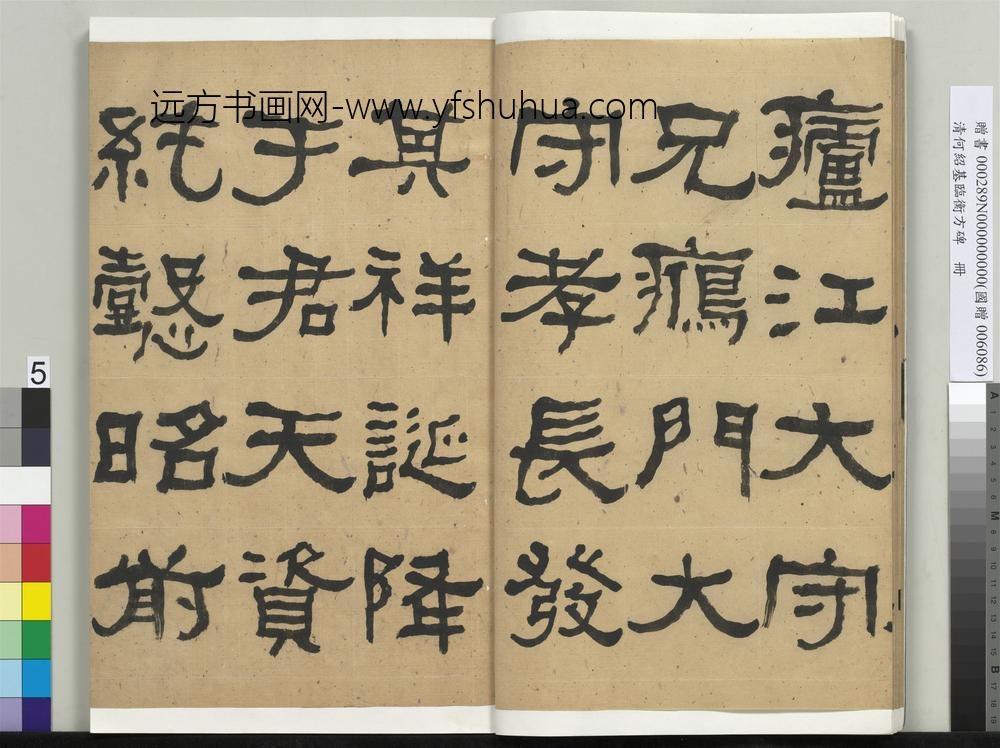 远方书画网-www.yfshuhua.com
廬江大守
兄鴈門大
守孝長發
其祥誕降
于君天資
純懿昭前
贈書 000289N000000000(國贈 006086)
清何紹基臨衡方碑 冊
5
A
M
B